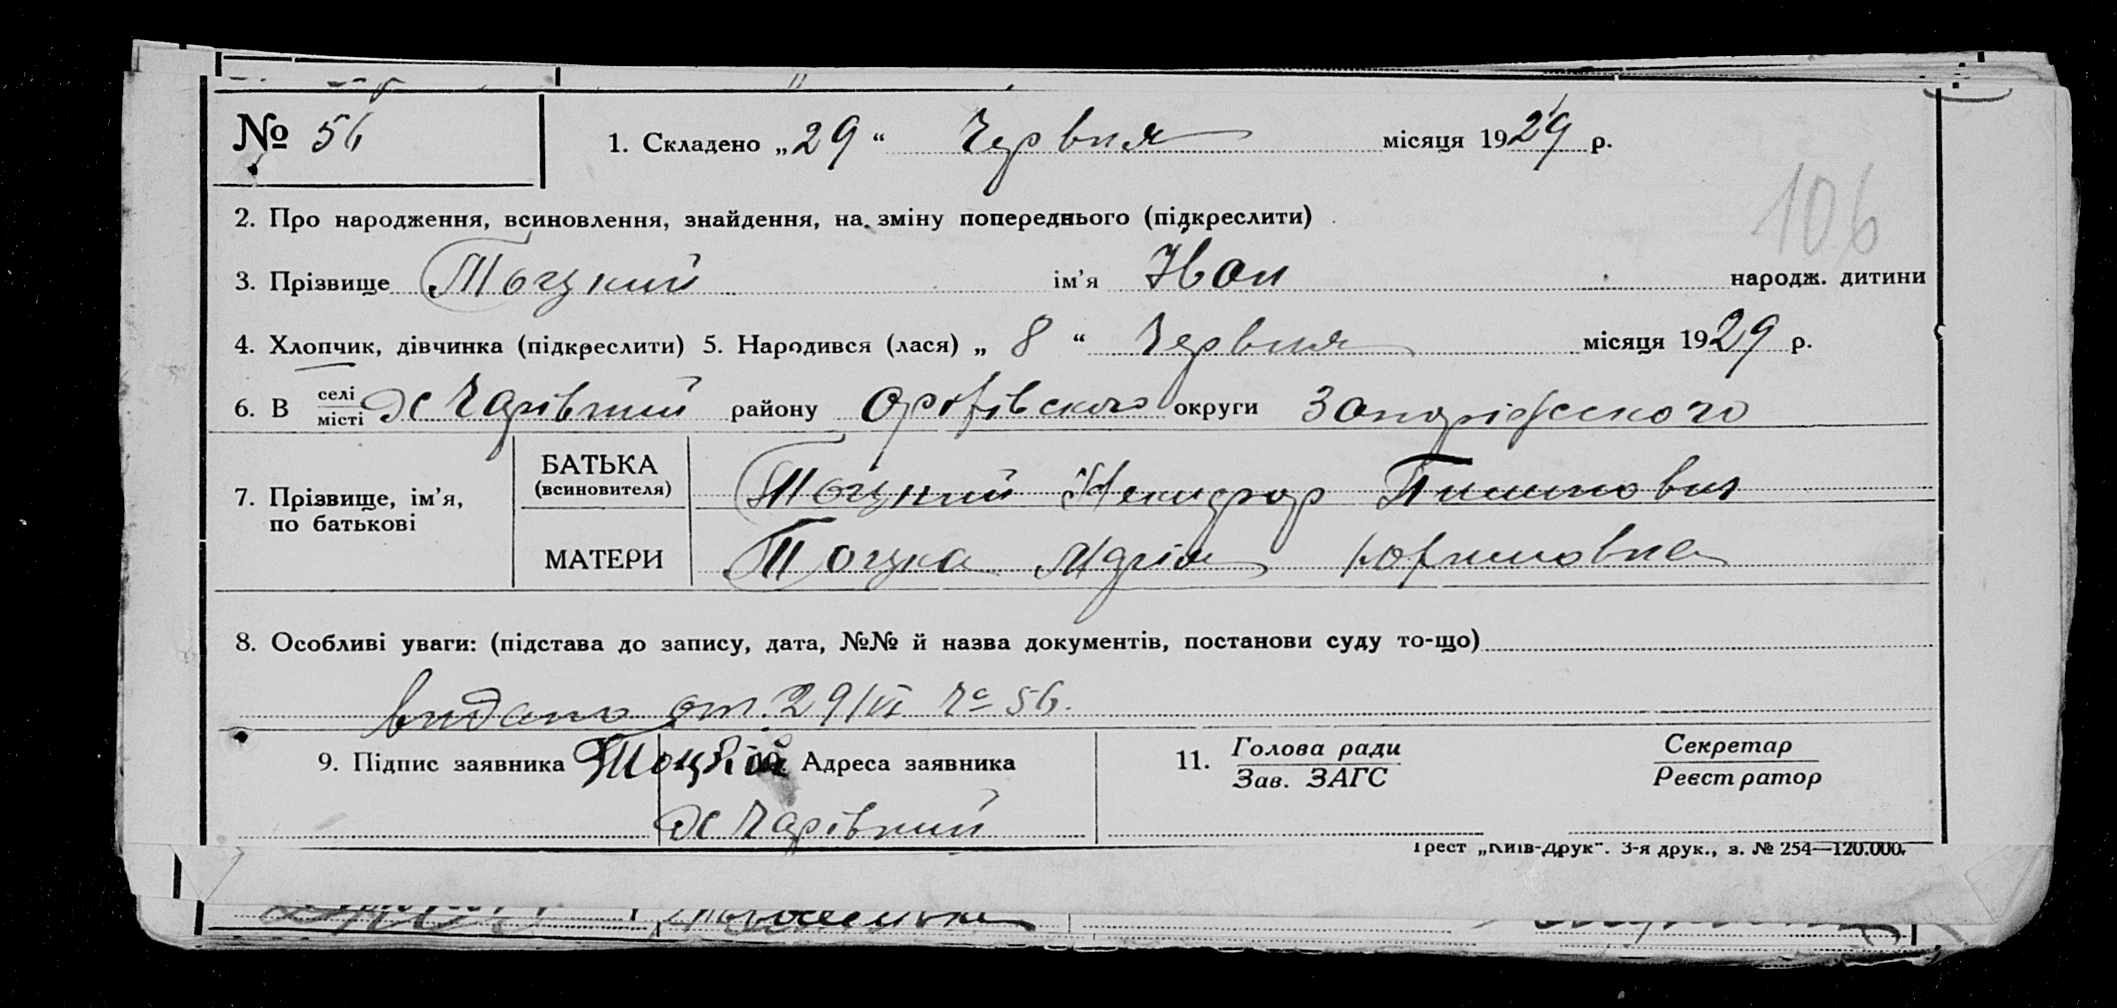 № 56
1. Складено „29“ Червня місяця 1929 р.
106
2. Про народження, всиновлення, знайдення, на зміну попереднього (підкреслити)
3. Прізвище Тоцкий ім’я Іван народж. дитини
4. Хлопчик, дівчинка (підкреслити) 5. Народився (лася) „ 8 “ Червня місяця 1929 р.
6. В селі/місті Х Чарівний району Оріхівского округи Запоріжского
7. Прізвище, ім’я, по батькові
БАТЬКА (всиновителя) Тоцкий Никифор
МАТЕРИ Тоцка Марія
8. Особливі уваги: (підстава до запису, дата, №№ й назва документів, постанови суду то-що)
видано от 29/VI № 56.
9. Підпис заявника Тоцкій 10. Адреса заявника
Х Чарівний
11. Голова ради/Зав. ЗАГС Секретар/Реєстратор
Трест „Київ-Друк“. 3-я друк., з. № 254—120.000.